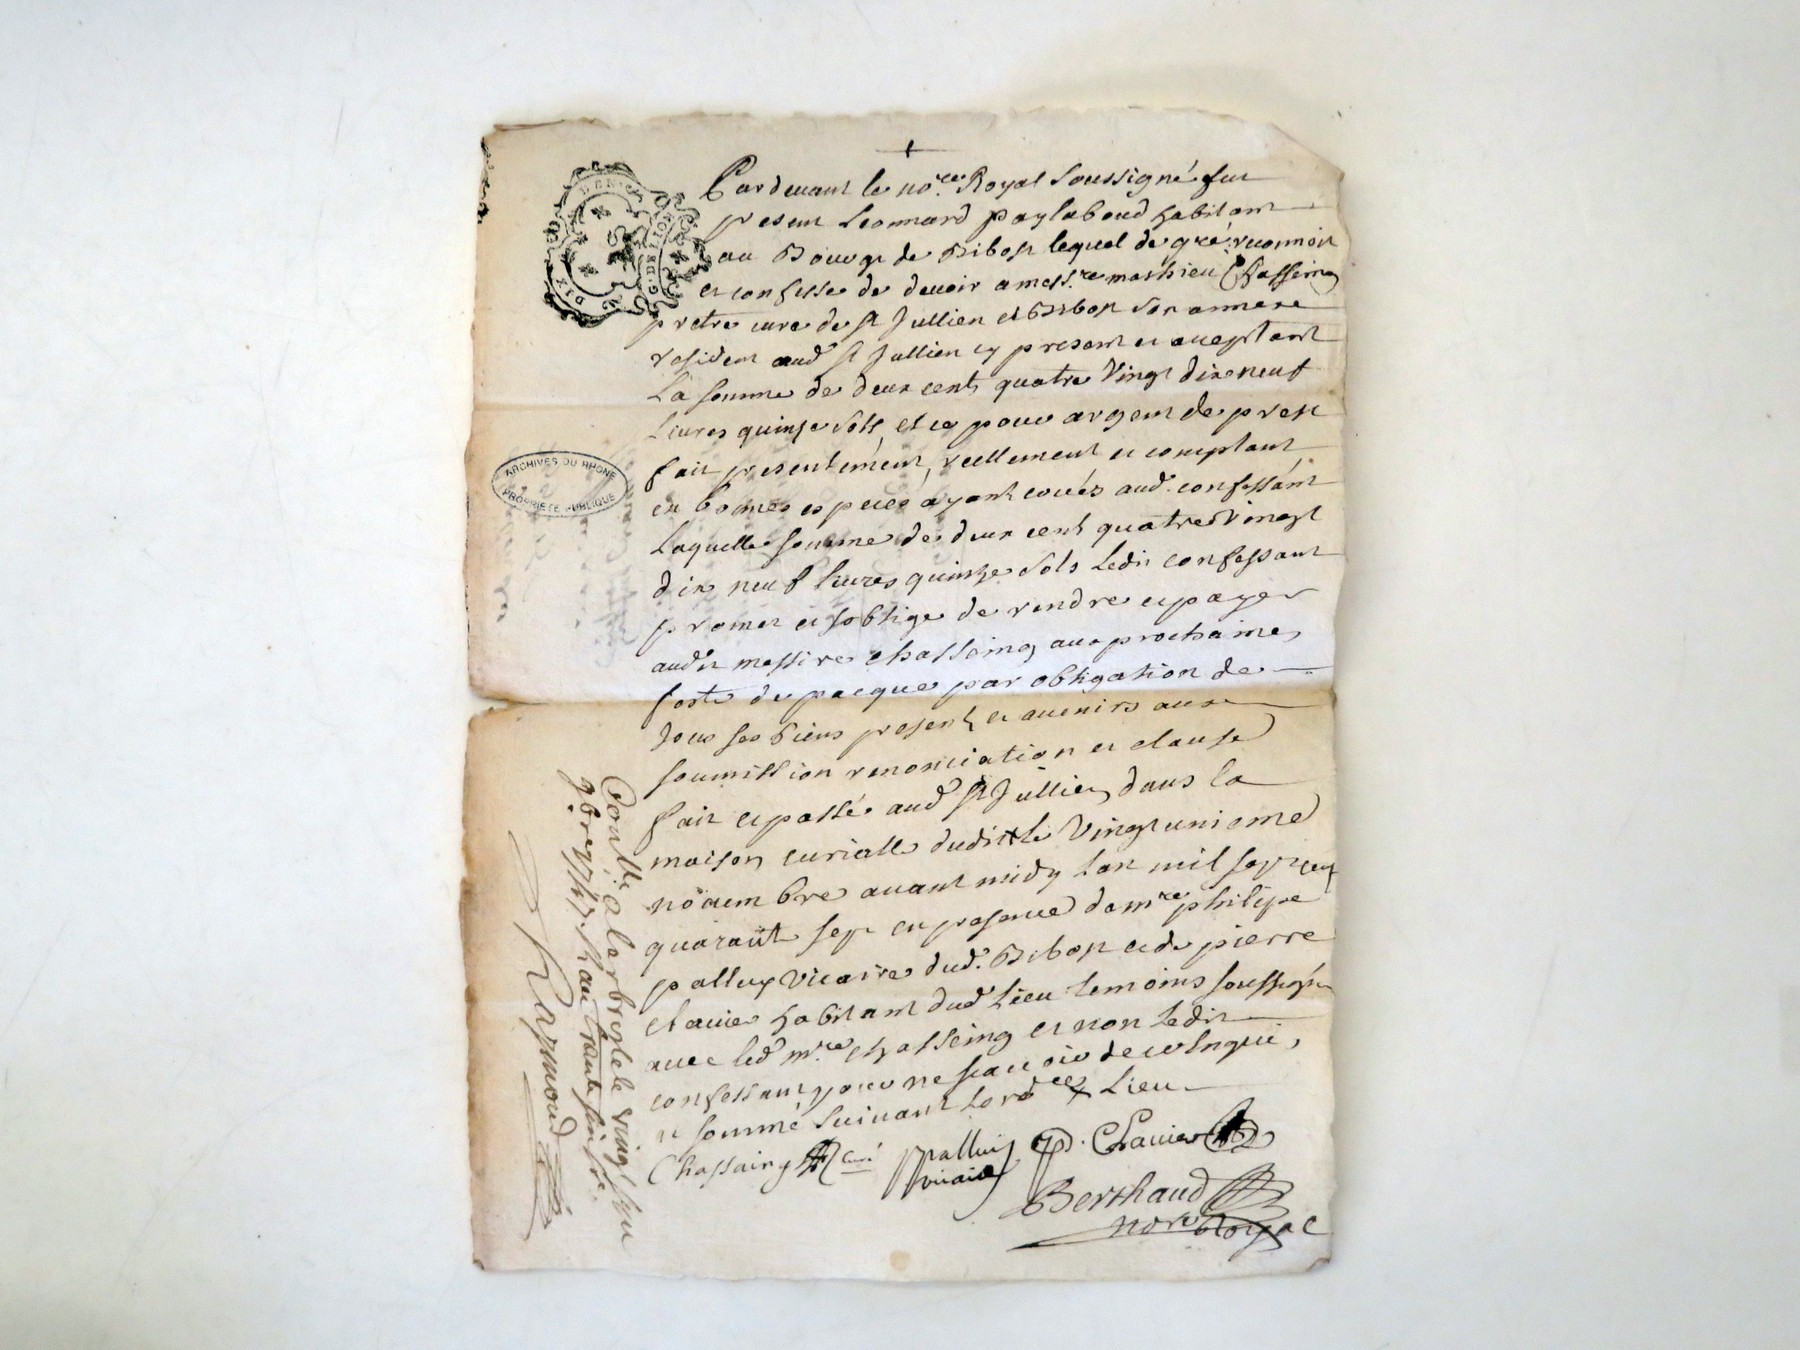 Pardevant le no.re Royal soussigné fut
present Leonnard paylaboud habitant
au Bourg de Bibost lequel de gré reconnoit
et confesse de devoir a mess.re mathieu Chasseing
pretre curé de st Jullien et Bibost son annexe
resident aud st Jullien cy present et acceptant
La somme de deux cents quatre vingt dix neuf
Livres quinze sols, et ce pour argent de prest
fait presentement, reellement et comptant,
en bonnes especes ayant cours aud. confessant
Laquelle somme de deux cent quatre vingt
dix neuf livres quinze sols Ledit confessant
promet et soblige de rendre et payer
audit messire chasseing aux prochaines
feste de pacque par obligation de
tous ses biens present et avenirs aux
soumission renonciation et clause
fait et passé aud st Jullien dans la
maison curialle dudit le vingt unieme
novembre avant midy Lan mil sept cent
quarante sept en presence de m.re philipe
palluy vicaire dud. Bibost et de pierre
clavier habitant dud Lieu temoins soussignés
avec led m.re chasseing et non Ledit
confessant pour ne scavoir de ce enquis,
et sommé suivant Lord.ce Lieu
Chassaing curé palluy vicaire P. Clavier
Berthaud
nore Royal
Controllé a larbresle le vingt
9bre 1747. Reçu trente six s.
Raymond
G. DE LION
DIX DEN
ARCHIVES DU RHONE
PROPRIETE PUBLIQUE